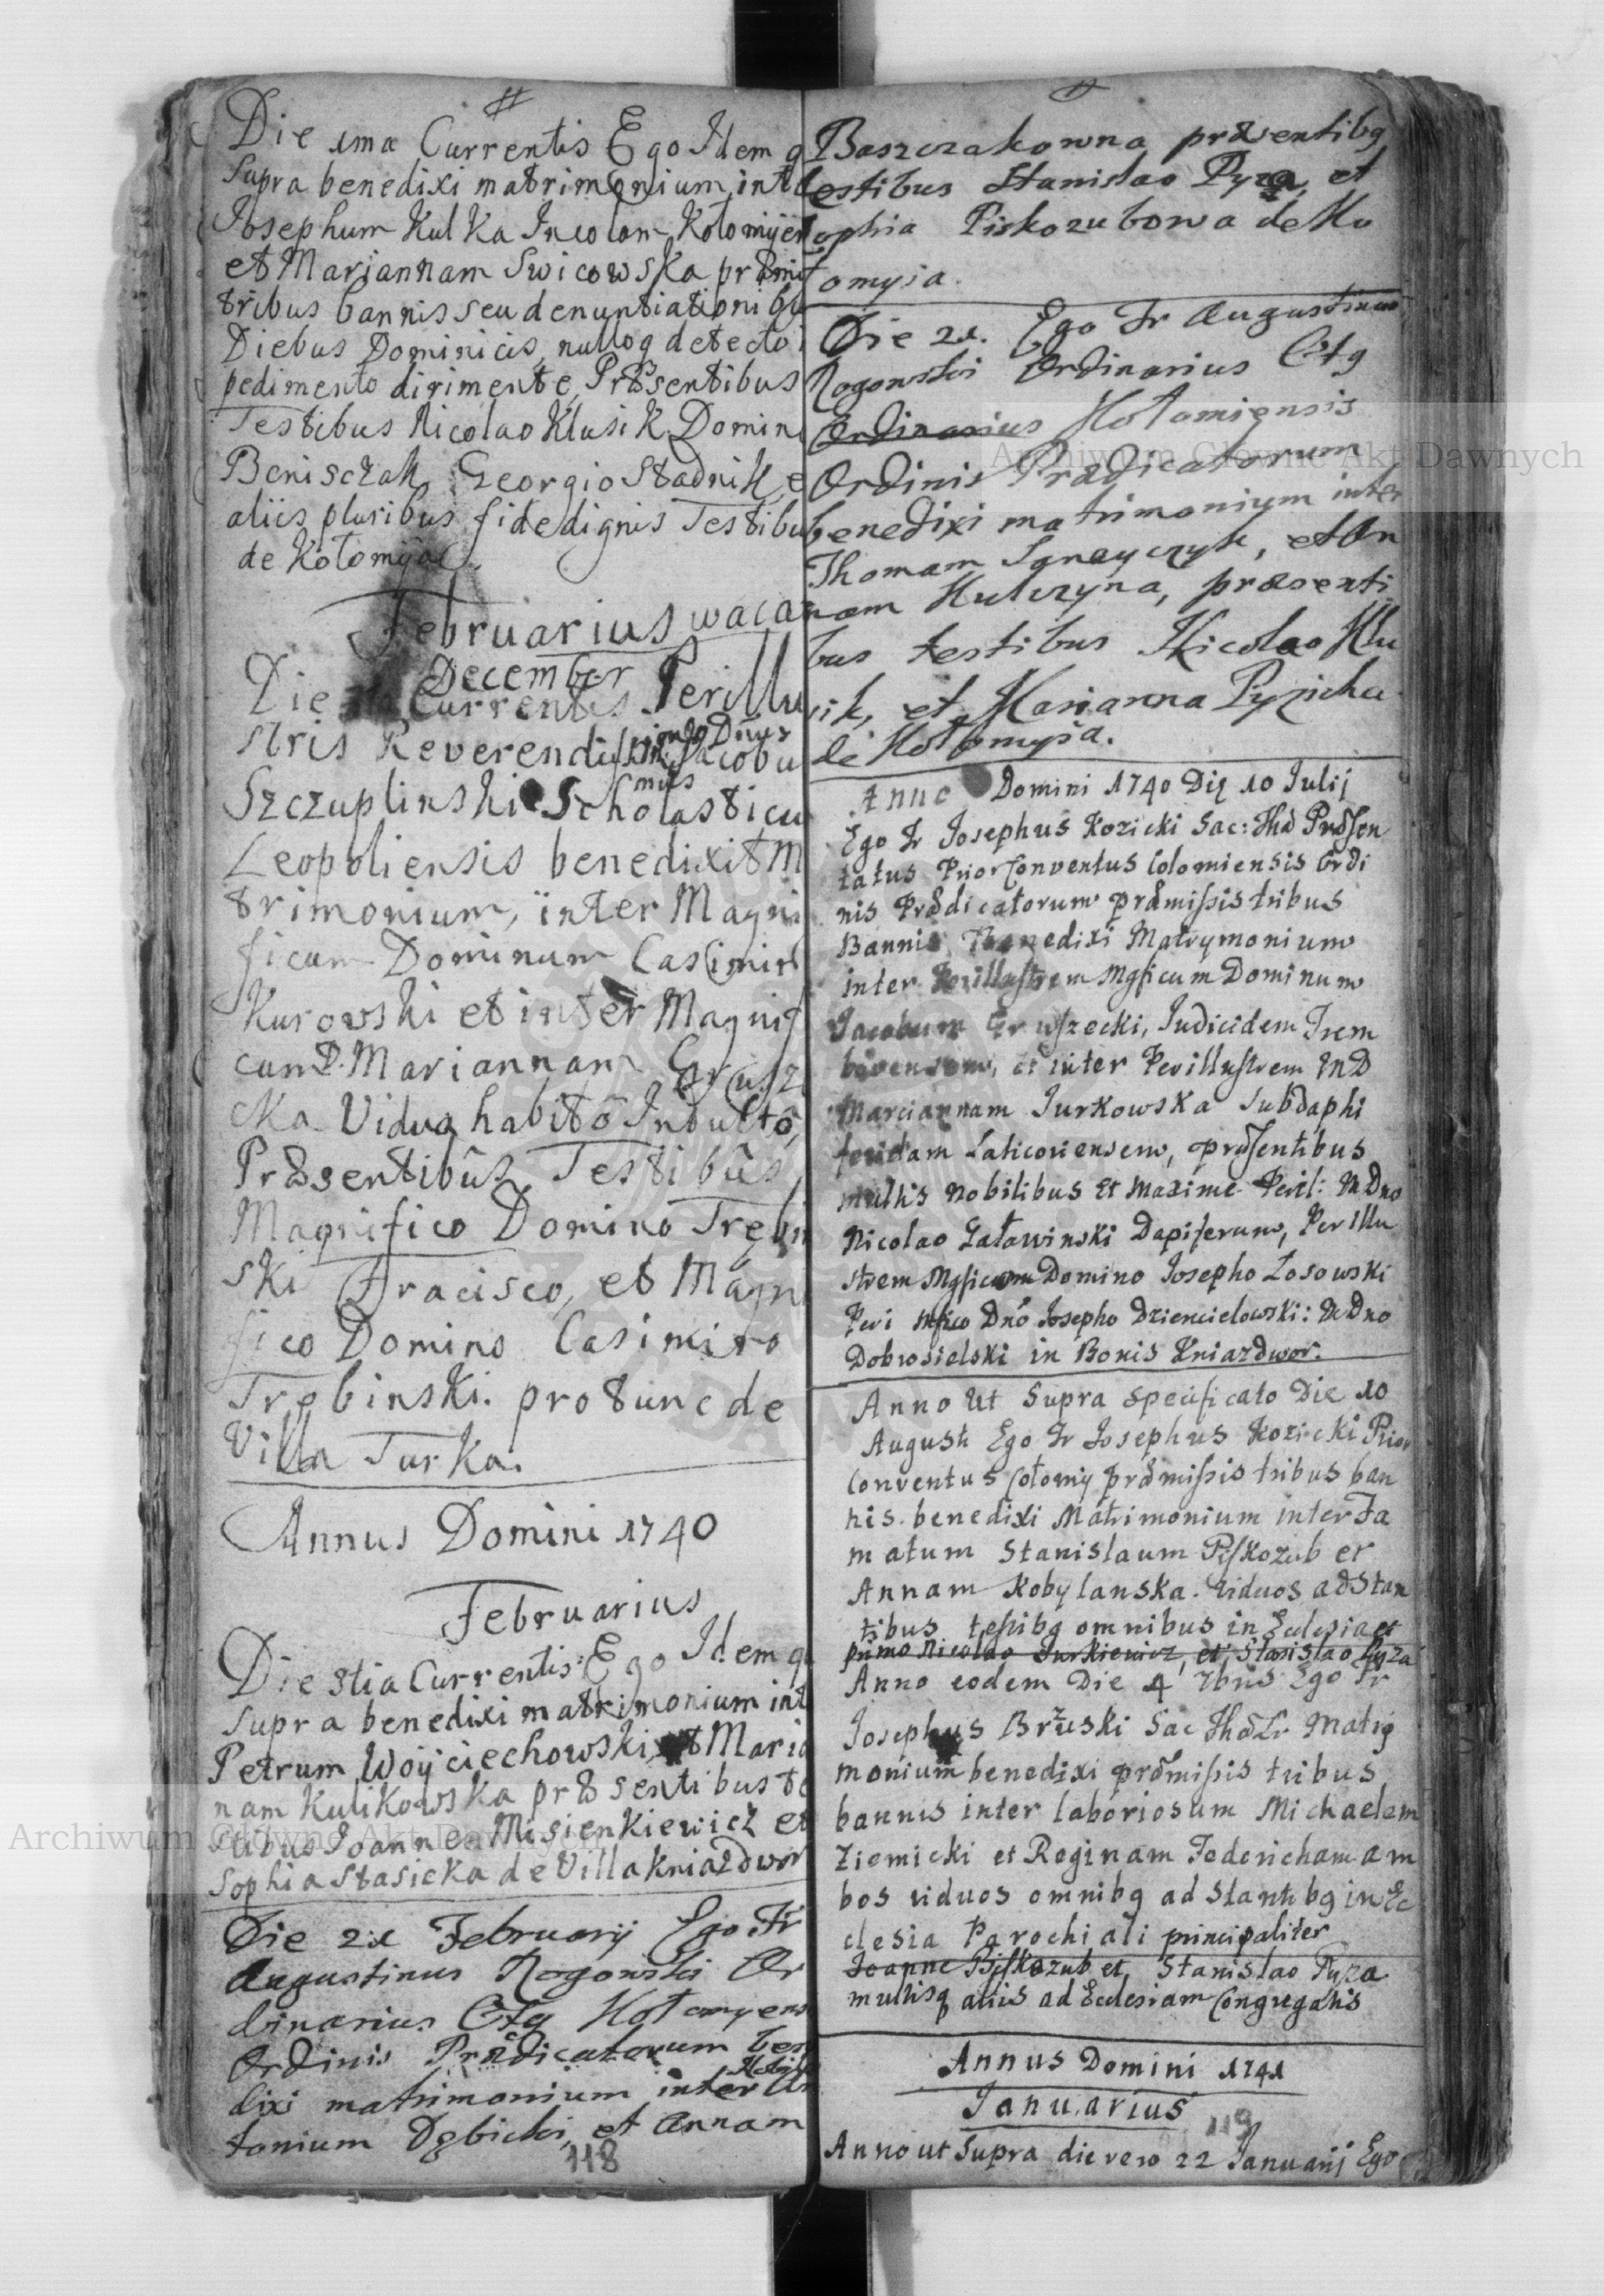 Die 1ma Currentis Ego Idem q
Supra benedixi matrimonium, inte
Josephum Kulka Incolam Kołomÿen
et Mariannam Swicowska præmis
tribus bannis seu denuntiationibus
Diebus Dominicis, nulloq detecto i
pedimento dirimente, Præsentibus
Testibus Nicolao Klusik Domini
Benisczak Georgio Stadnik, e
aliis pluribus fide dignis Testibu
de Kołomÿa
Februarius waca
December
Die Currentis Perillu
stris Reverendissimus Dnus Jacobu
Szczuplinski Scholasticu
Leopoliensis benedixit M
trimonium, inter Magni
ficum Dominum Casimir
Kurowski et inter Magnif
cam D. Mariannam Grusz
cka Vidua habitô Indultô,
Præsentibûs Testibûs
Magnifico Domino Trębi
ski Fracisco, et Magni
fico Domino Casimiro
Trębinski. pro tunc de
Villa Turka.
Annus Domini 1740
Februarius
Die 5tia Currentis Ego Idem qu
Supra benedixi matrimonium int
Petrum Woÿciechowski et Maria
nam Kulikowska præsentibus te
stibus Joanne Misienkiewicz et
Sophia Stasicka de Villa Kniazdwor
Die 21 Februarij Ego Fr
Augustinus Rogowski Or
dinarius Ctg Kołomyens
Ordinis Prædicatorum ben
dixi matrimonium inter An
tonium Dębicki, et Annam
118
Baszczakowna præsentibg
testibus Stanislao Pyza, et
Sophia Piskozubowa de Ko
łomyia.
Die 21. Ego Fr Augustinus
Rogowski Ordinarius Ctg
Ordinarius Kołomiensis
Ordinis Prædicatorum
benedixi matrimonium inter
Thomam Ignayczyk, et An
nam Kulczyna, præsenti
bus testibus Nicolao Klu
sik, et Marianna Pyzicha
de Kołomyia.
Anno Domini 1740 Die 10 Julij
Ego Fr Josephus Kozicki Sac: Thæ Præsen
tatus Prior Conventus Colomiensis Ordi
nis Prædicatorum præmissis tribus
Bannis Benedixi Matrymonium
inter Perillustrem Mgficum Dominum
Jacobum Gruszecki, Judicidem Trem
bovensem, et inter Perillustrem MD
Mariannam Jurkowska Subdaphi
feridam Laticoviensem, præsentibus
multis Nobilibus et Maxime Peril: M Dno
Nicolao Załawinski Dapiferum, Perillu
strem Mgficum Domino Josepho Losowski
Peri Mfico Dnô Josepho Dziencielowski: M Dno
Dobrosielski in Bonis Kniazdwor.
Anno Ut Supra specificato Die 10
Augusti Ego Fr Josephus Kozicki Prior
Conventus Cołomij præmissis tribus ban
nis benedixi Matrimonium inter Fa
matum Stanislaum Piskozub et
Annam Kobylanska viduos adstan
tibus testibg omnibus in Ecclesia et
primo Nicolao Jurkiewicz, et Stanislao Pyza
Anno eodem Die 4 7bris Ego Fr
Josephus Brzuski Sac Thæ Lr Matrÿ
monium benedixi præmissis tribus
bannis inter laboriosum Michaelem
Ziemicki et Reginam Federicham am
bos viduos omnibg adstantibg in Ec
clesia Parochiali principaliter
Joanne Piskozub et Stanislao Pyza
multisq aliis ad Ecclesiam Congregatis
Annus Domini 1741
Januarius
119
Anno ut Supra die vero 22 Januarij Ego
Archiwum Główne Akt Dawnych
Archiwum Główne Akt Dawnych